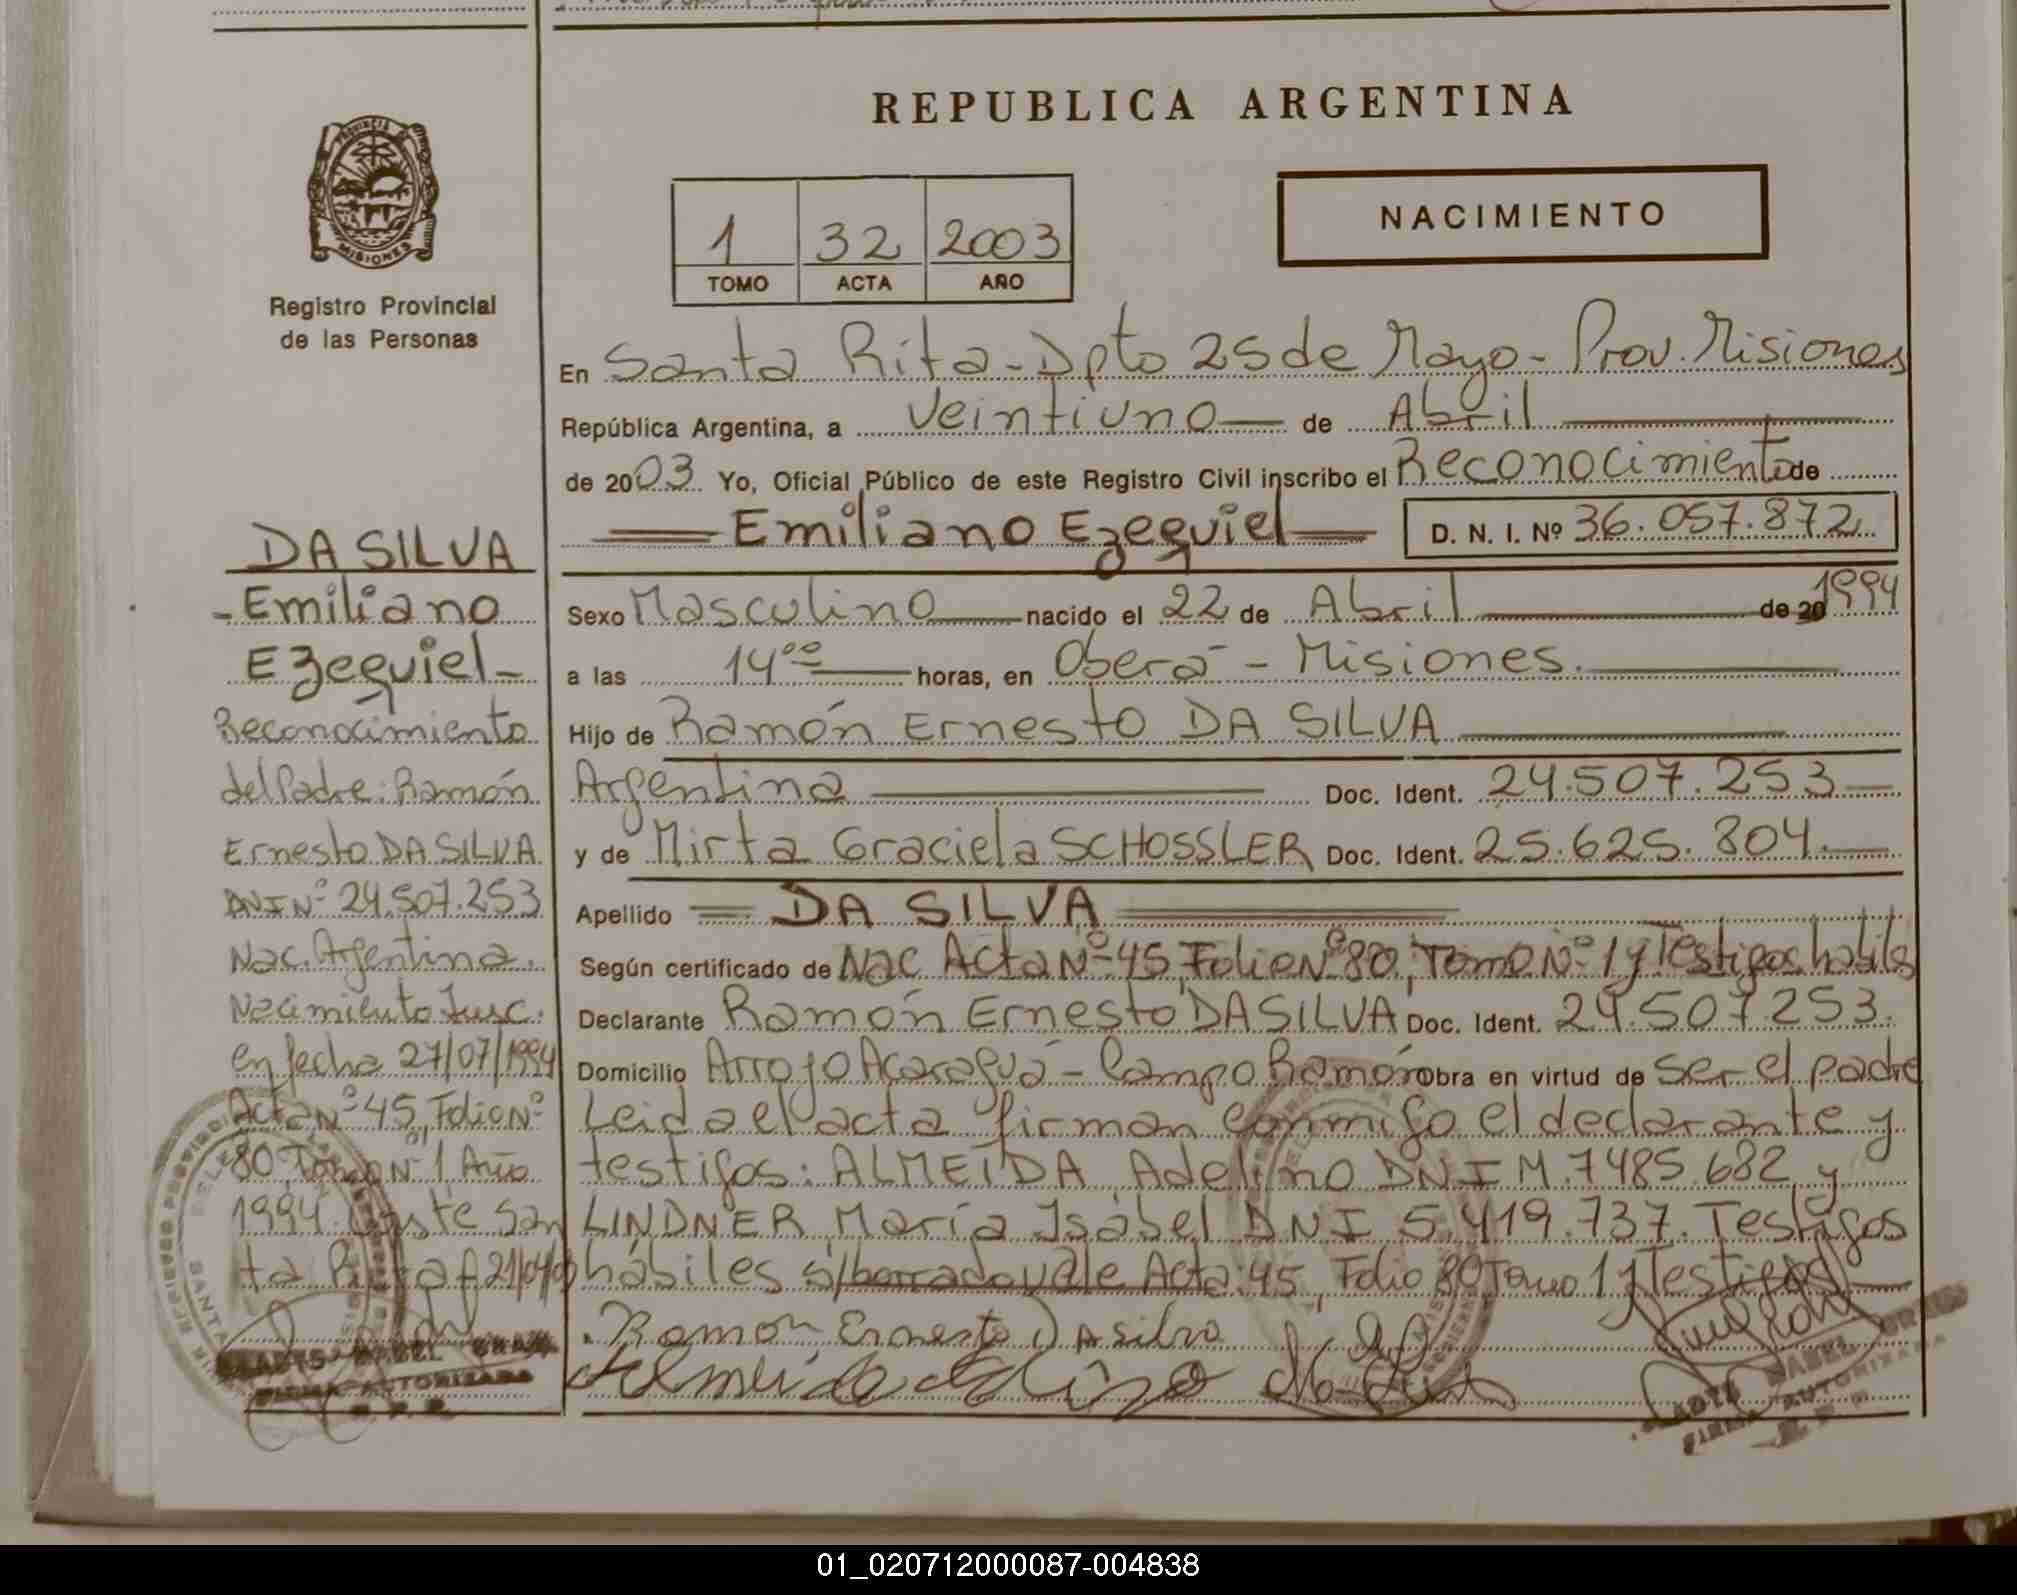 REPUBLICA ARGENTINA
PROVINCIA DE
MISIONES
Registro Provincial
de las Personas
1 32 2003
TOMO ACTA AÑO
NACIMIENTO
En Santa Rita - Dpto 25 de Mayo - Prov. Misiones
República Argentina, a Veintiuno de Abril
de 2003 Yo, Oficial Público de este Registro Civil inscribo el Reconocimiento de
Emiliano Ezequiel D. N. I. Nº 36.057.872
Sexo Masculino nacido el 22 de Abril de 20 1994
a las 14 oo horas, en Oberá - Misiones.
Hijo de Ramón Ernesto DA SILVA
Argentina Doc. Ident. 24.507.253
y de Mirta Graciela SCHOSSLER Doc. Ident. 25.625.804.
Apellido DA SILVA
Según certificado de Nac Acta Nº 45, Folio Nº 80, Tomo Nº 1 y Testigos hábiles
Declarante Ramón Ernesto DA SILVA Doc. Ident. 24.507.253.
Domicilio Arroyo Acaraguá - Campo Ramón Obra en virtud de ser el padre
Leida el acta firman conmigo el declarante y
testigos: ALMEIDA, Adelino DNI M. 7485.682 y
LINDNER María Isabel DNI 5.419.737. Testigos
hábiles s/borrado vale Acta: 45, Folio 80 Tomo 1 y Testigos
Ramon Ernesto Da silva
DA SILVA
- Emiliano
Ezequiel -
Reconocimiento
del Padre: Ramón
Ernesto DA SILVA
DNI Nº 24.507.253
Nac. Argentina.
Nacimiento Insc.
en fecha 27/07/1994
Acta Nº 45, Folio Nº
80, Tomo Nº 1 Año
1994. Conste San
ta Rita 21/04/03
FIRMA AUTORIZADA
FIRMA AUTORIZADA
01_020712000087-004838